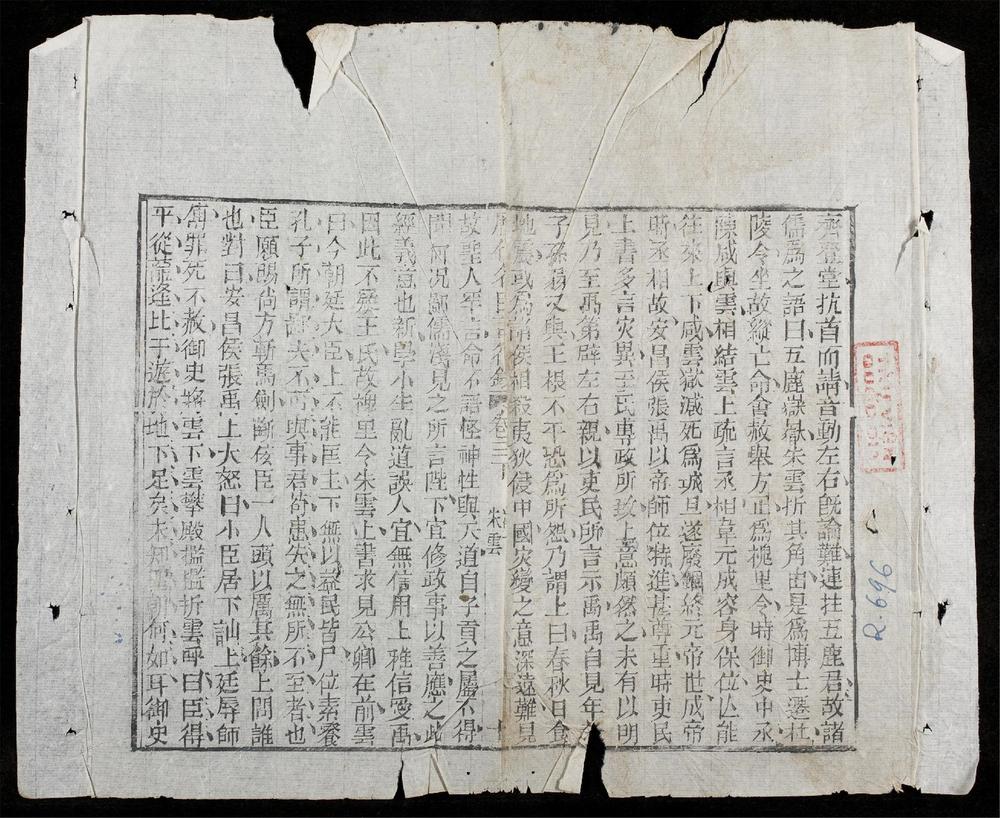 齊登堂抗首而請音動左右旣論難連拄五鹿君故諸
儒爲之語曰五鹿嶽嶽朱雲折其角由是爲博士遷杜
陵令坐故縱亡命會赦舉方正爲槐里令時御史中丞
陳咸與雲相結雲上疏言丞相韋元成容身保位亾能
往來上下咸雲獄減死爲城旦遂廢錮終元帝世成帝
時丞相故安昌侯張禹以帝師位特進甚尊重時吏民
上書多言灾異王氏專政所致上意頗然之未有以明
見乃至禹第辟左右親以吏民所言示禹禹自見年老
子孫弱又與王根不平恐爲所怨乃謂上曰春秋日食
地震或爲諸侯相殺夷狄侵中國灾變之意深遠難見
歷代名臣言行錄 卷三 朱雲
故聖人罕言命不語怪神性與天道自子貢之屬不得
聞何況鄙儒淺見之所言陛下宜修政事以善應之此
經義意也新學小生亂道誤人宜無信用上雅信愛禹
因此不疑王氏故槐里令朱雲上書求見公卿在前雲
曰今朝廷大臣上不能匡主下無以益民皆尸位素餐
孔子所謂鄙夫不可與事君苟患失之無所不至者也
臣願賜尚方斬馬劍斷佞臣一人頭以厲其餘上問誰
也對曰安昌侯張禹上大怒曰小臣居下訕上廷辱師
傅罪死不赦御史將雲下雲攀殿檻檻折雲呼曰臣得
下從龍逄比干遊於地下足矣未知朝何如耳御史
R.696